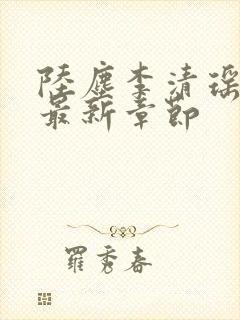 陸塵李清瑶
最新章節
羅秀春